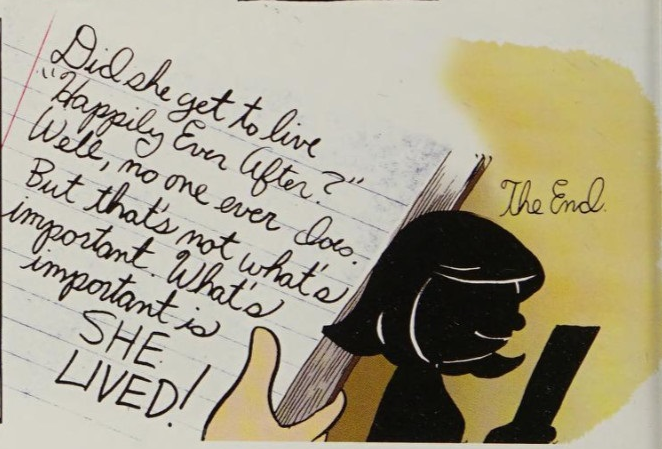 Did she get to live
"Happily Ever After?"
Well, no one ever does.
But that's not what's
important. What's
important is
SHE
LIVED!
The End.